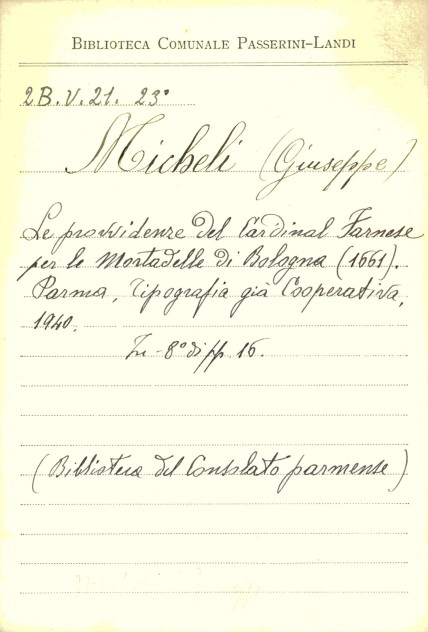 BIBLIOTECA COMUNALE PASSERINI-LANDI
2B.V.21. 23°
Micheli (Giuseppe)
Le provvidenze del Cardinal Farnese
per le Mortadelle di Bologna (1661).
Parma, Tipografia già Cooperativa,
1940.
In-8° di pp. 16.
(Biblioteca del Consolato parmense)